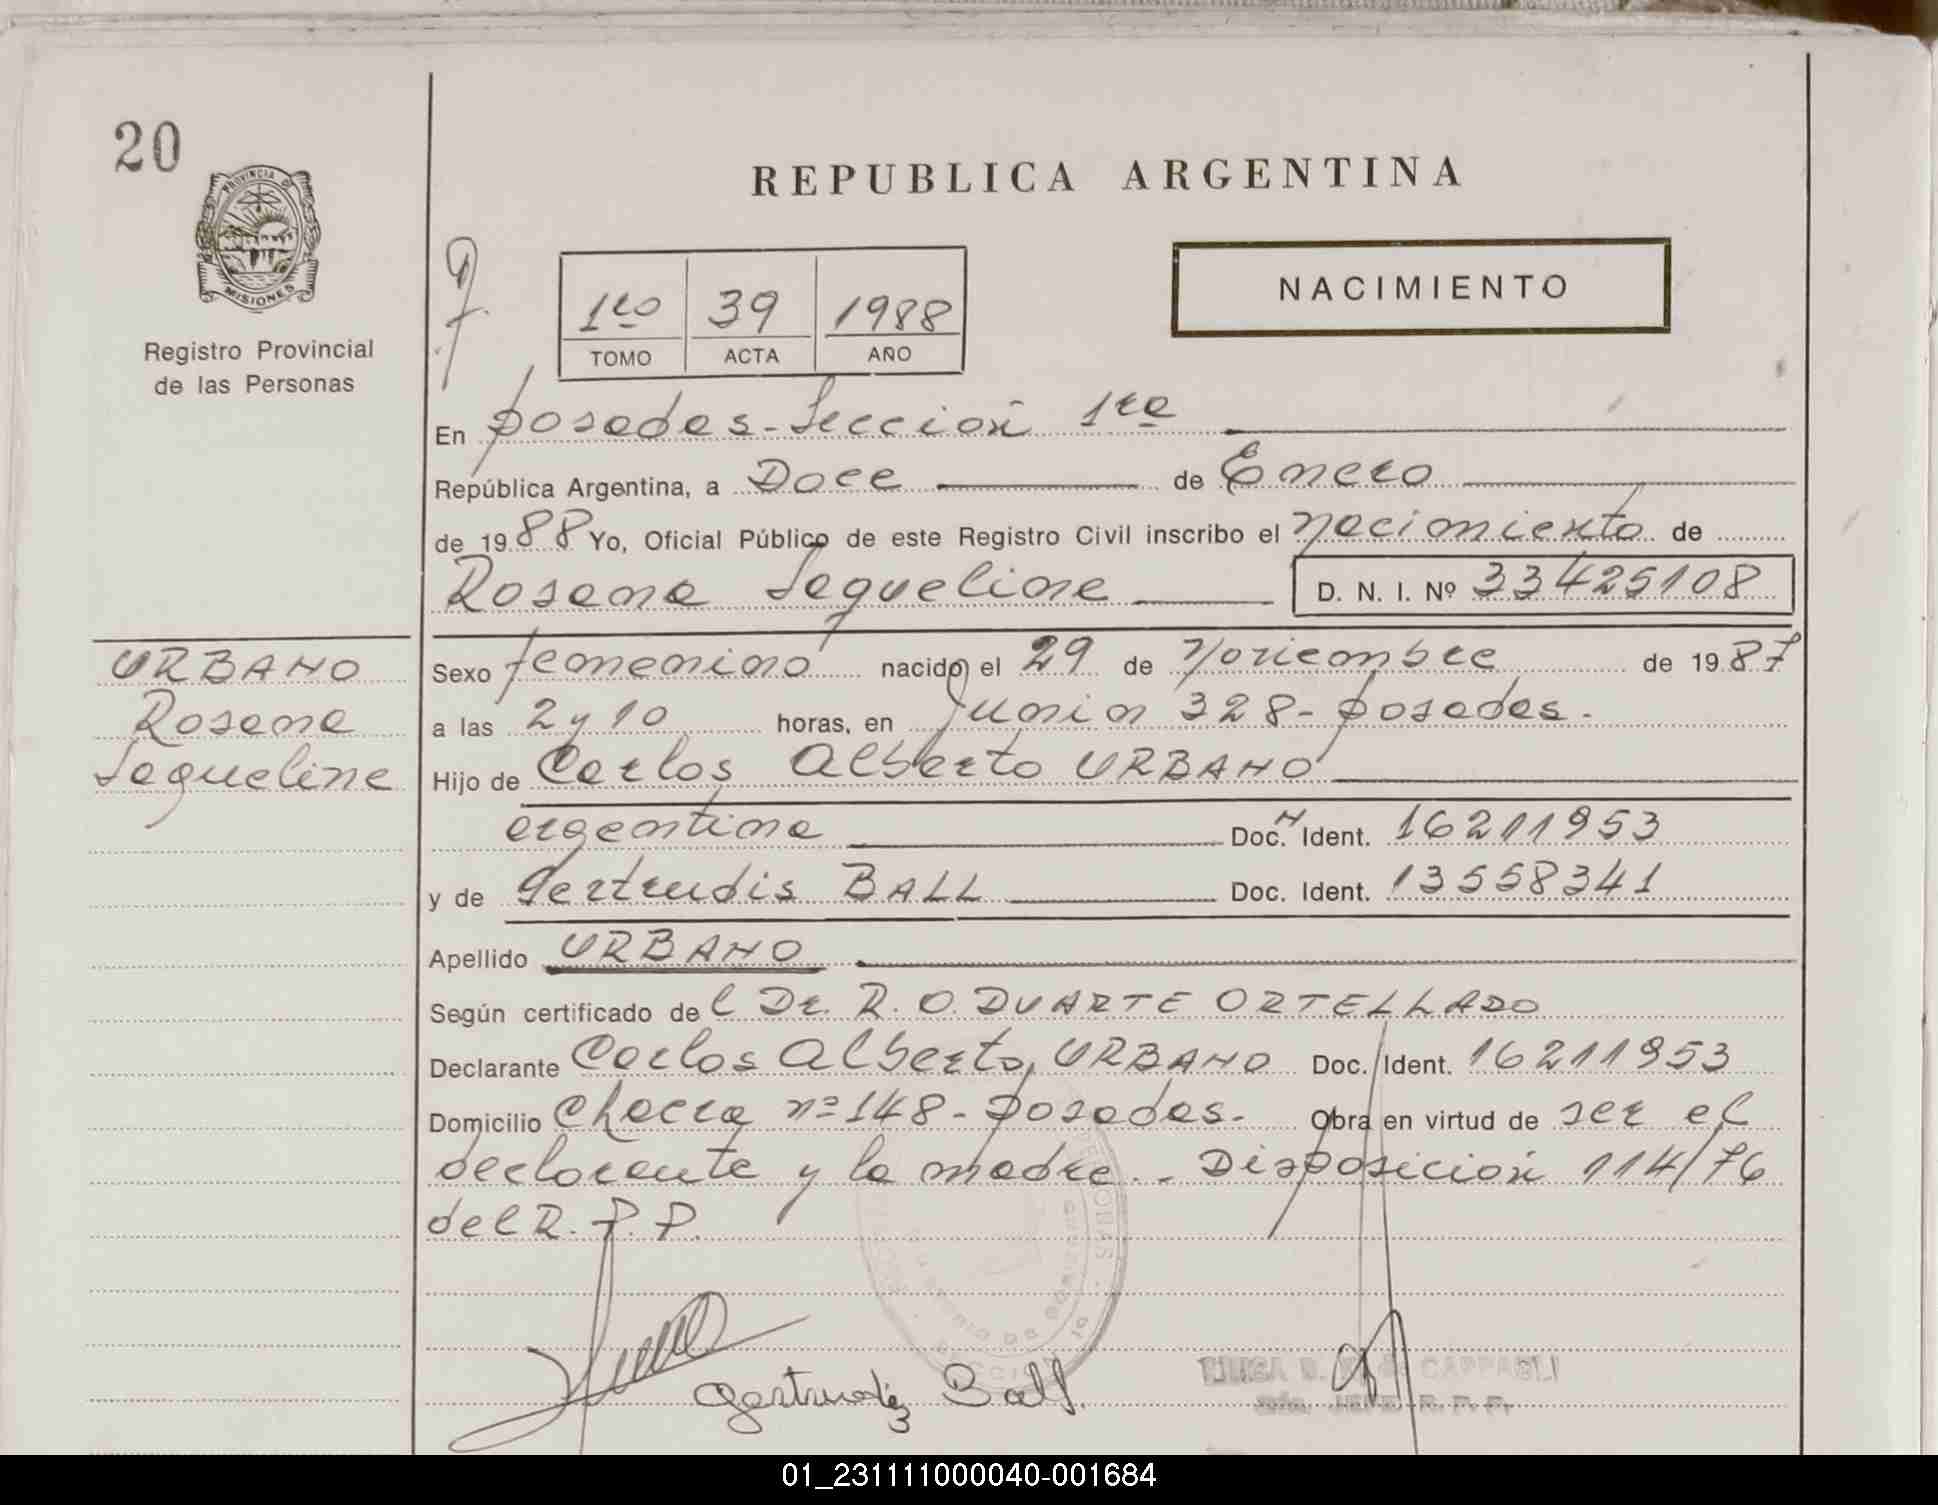 20
PROVINCIA DE
MISIONES
Registro Provincial
de las Personas
REPUBLICA ARGENTINA
1ro 39 1988
TOMO ACTA AÑO
NACIMIENTO
En posadas - Sección 1ra
República Argentina, a Doce de Enero
de 1988 Yo, Oficial Público de este Registro Civil inscribo el nacimiento de
Rosana Jaqueline D. N. I. Nº 33425108
URBANO
Rosana
Jaqueline
Sexo femenino nacido el 29 de Noviembre de 1987
a las 2 y 10 horas, en Junin 328 - posadas.
Hijo de Carlos Alberto URBANO
argentina Doc. Ident. 16211953
y de Gertrudis BALL Doc. Ident. 13558341
Apellido URBANO
Según certificado del Dr. R. O. DUARTE ORTELLADO
Declarante Carlos Alberto URBANO Doc. Ident. 16211953
Domicilio Chacra nº 148 - posadas. Obra en virtud de ser el
declarante y la madre. - Disposición 114/76
del R. P. P.
Gertrudis Ball.
CAPPAGLI
JEFE R. P. P.
01_231111000040-001684